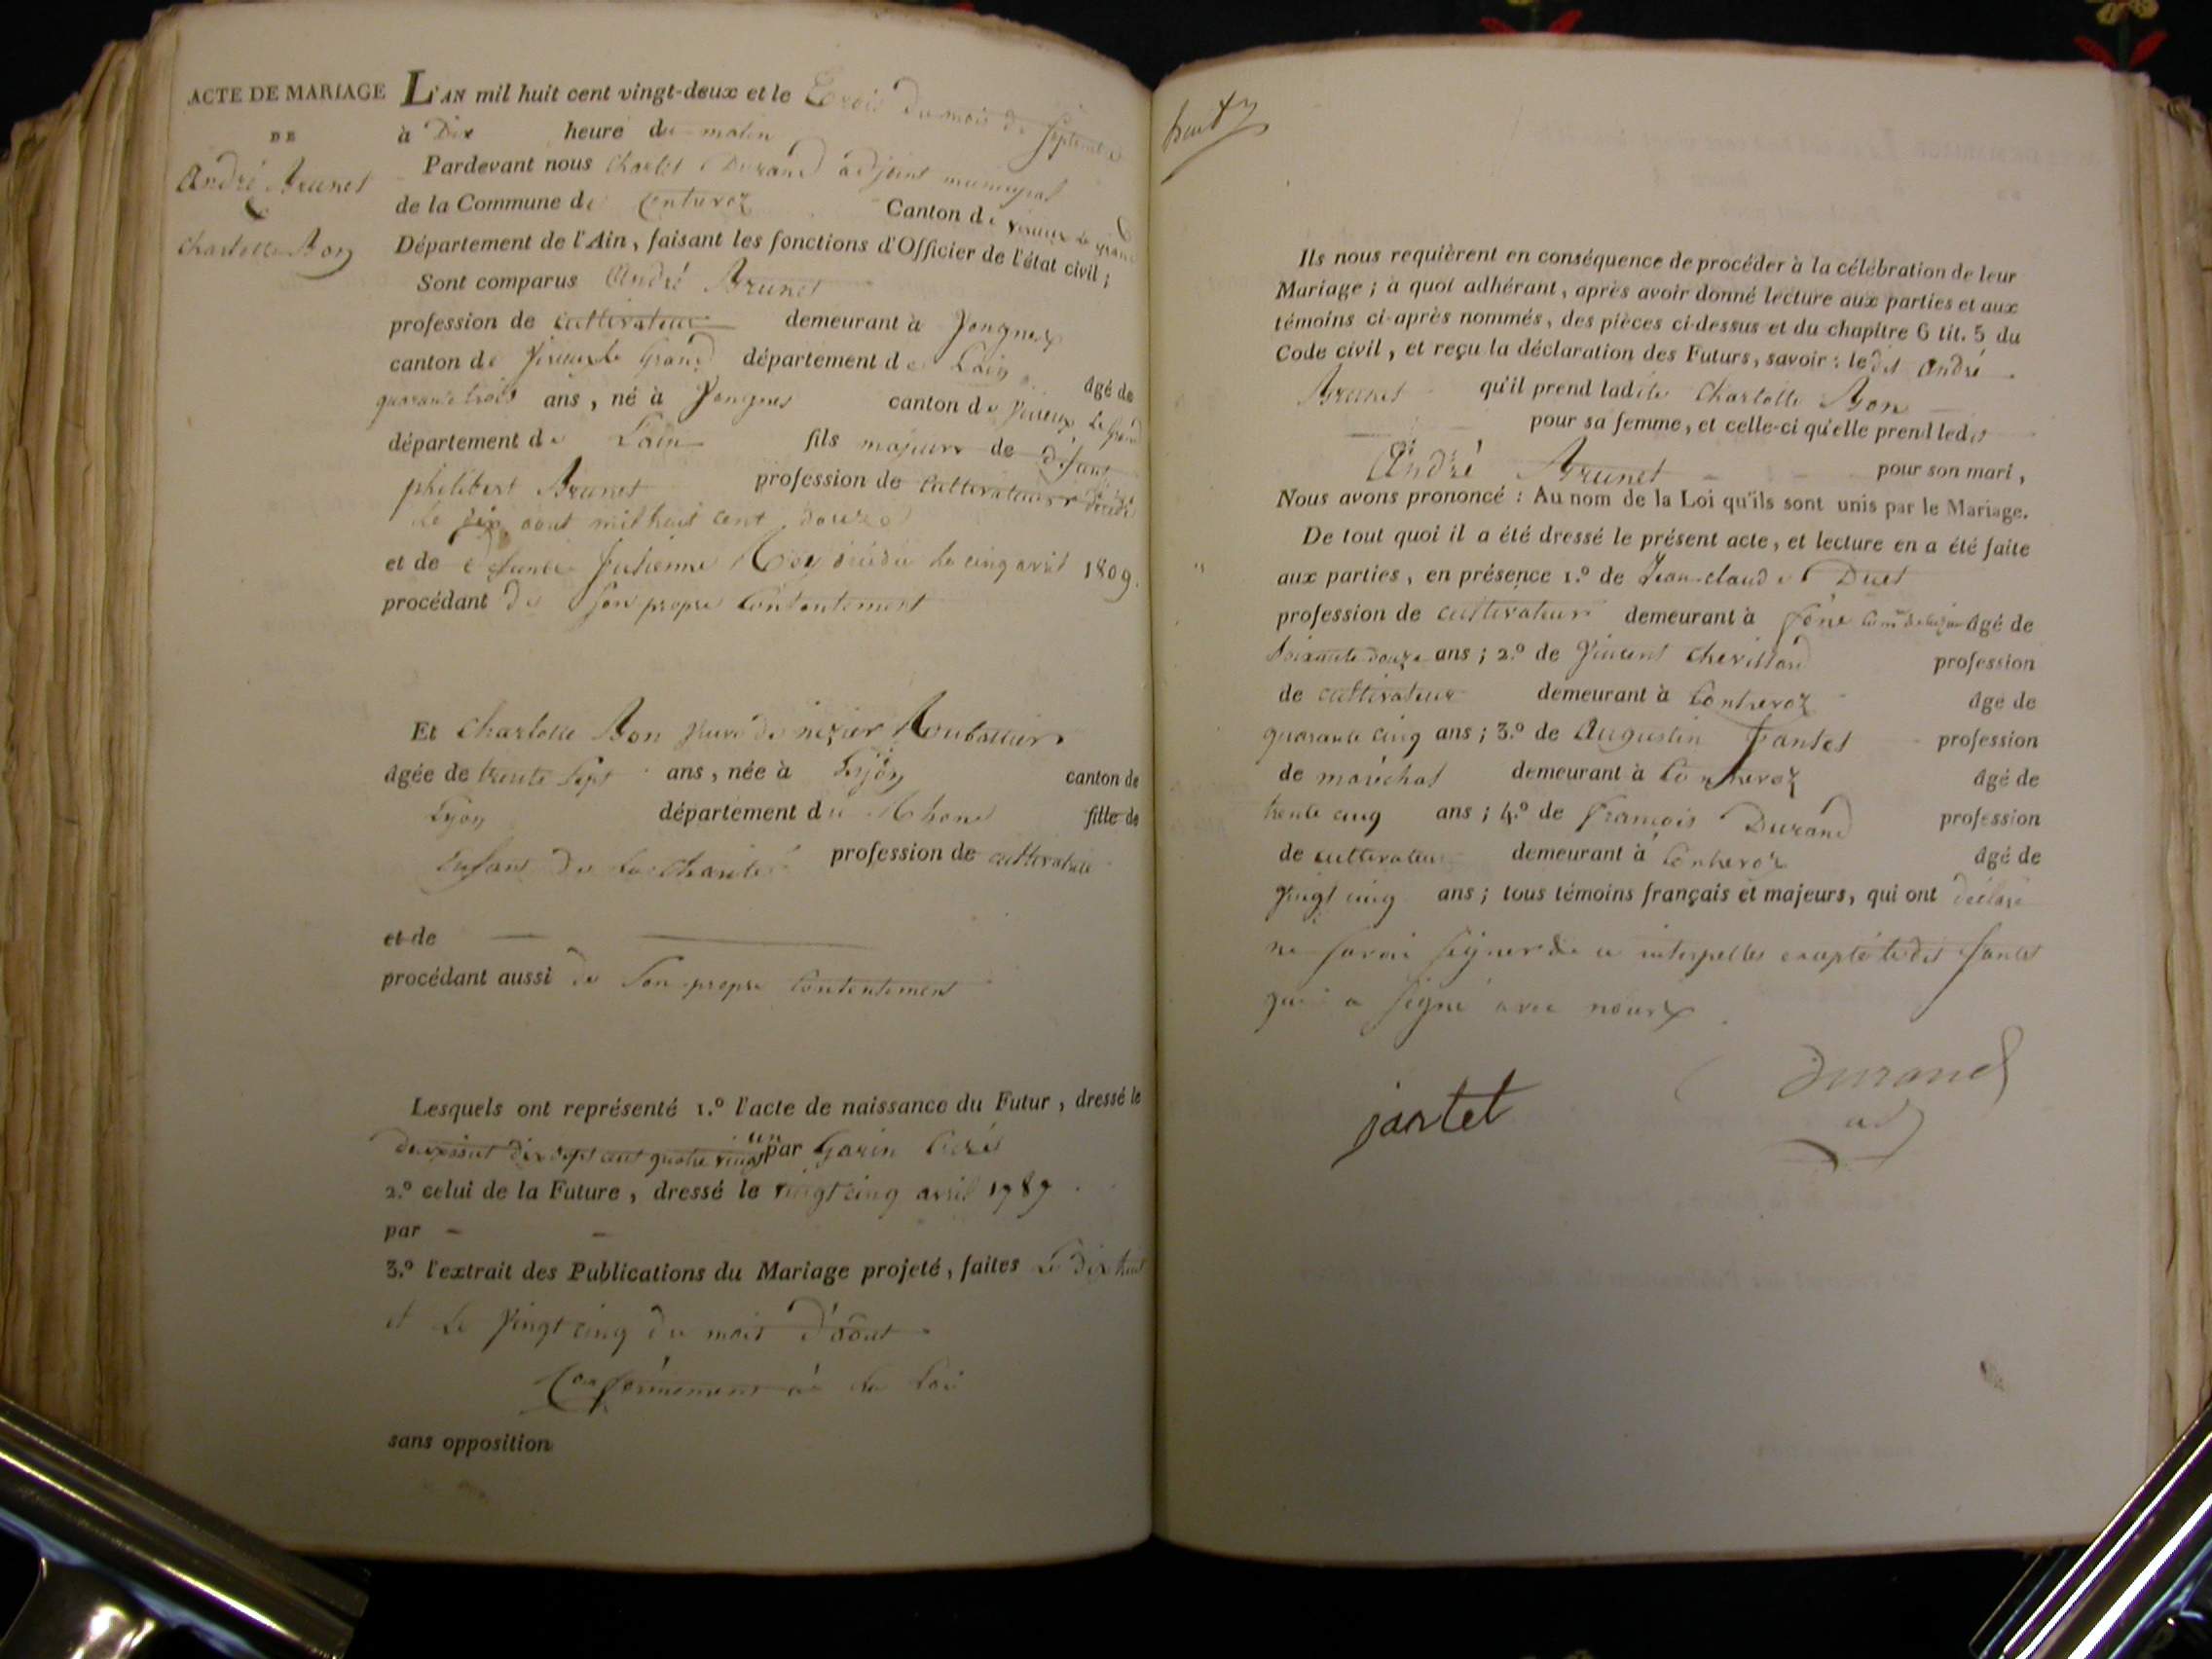 ACTE DE MARIAGE
DE
André Brunet
&
Charlotte Bon
L'AN mil huit cent vingt-deux et le Trois du mois de septembre
à Dix heure du matin
Pardevant nous Charles Durand adjoint municipal
de la Commune de Contrevoz Canton de virieux le grand
Département de l'Ain, faisant les fonctions d'Officier de l'état civil;
Sont comparus André Brunet
profession de cultivateur demeurant à
canton de virieux le Grand département de Lain âgé de
quarante trois ans, né à canton de virieux le Grand
département de Lain fils majeur de défunt
philibert Brunet profession de cultivateur décédé
Le dix aout mil huit cent douze
et de défunte décédée le cinq avril 1809.
procédant de son propre contentement
Et Charlotte Bon veuve de nizier
âgée de trente sept ans, née à Lyon canton de
Lyon département du Rhone fille de
Enfant de la charité profession de cultivatrice
et de
procédant aussi de son propre contentement
Lesquels ont représenté 1.º l'acte de naissance du Futur, dressé le
dix sept cent quatre vingt un par Garin Curé
2.º celui de la Future, dressé le vingt cinq avril 1787
par
3.º l'extrait des Publications du Mariage projeté, faites Le dix huit
et Le vingt cinq du mois d'aout
Conformément à la Loi
sans opposition
huit
Ils nous requièrent en conséquence de procéder à la célébration de leur
Mariage; à quoi adhérant, après avoir donné lecture aux parties et aux
témoins ci-après nommés, des pièces ci-dessus et du chapitre 6 tit. 5 du
Code civil, et reçu la déclaration des Futurs, savoir: ledit André
Brunet qu'il prend ladite Charlotte Bon
pour sa femme, et celle-ci qu'elle prend ledit
André Brunet pour son mari,
Nous avons prononcé: Au nom de la Loi qu'ils sont unis par le Mariage.
De tout quoi il a été dressé le présent acte, et lecture en a été faite
aux parties, en présence 1.º de Jean claude Duet
profession de cultivateur demeurant à âgé de
soixante douze ans; 2.º de vincent chevillard profession
de cultivateur demeurant à Contrevoz âgé de
quarante cinq ans; 3.º de Augustin Jantet profession
de maréchal demeurant à Contrevoz âgé de
trente cinq ans; 4.º de françois Durand profession
de cultivateur demeurant à Contrevoz âgé de
vingt cinq ans; tous témoins français et majeurs, qui ont déclaré
ne savoir signer de ce interpellés excepté ledit Jantet
qui a signé avec nous
jantet
Durand
adj